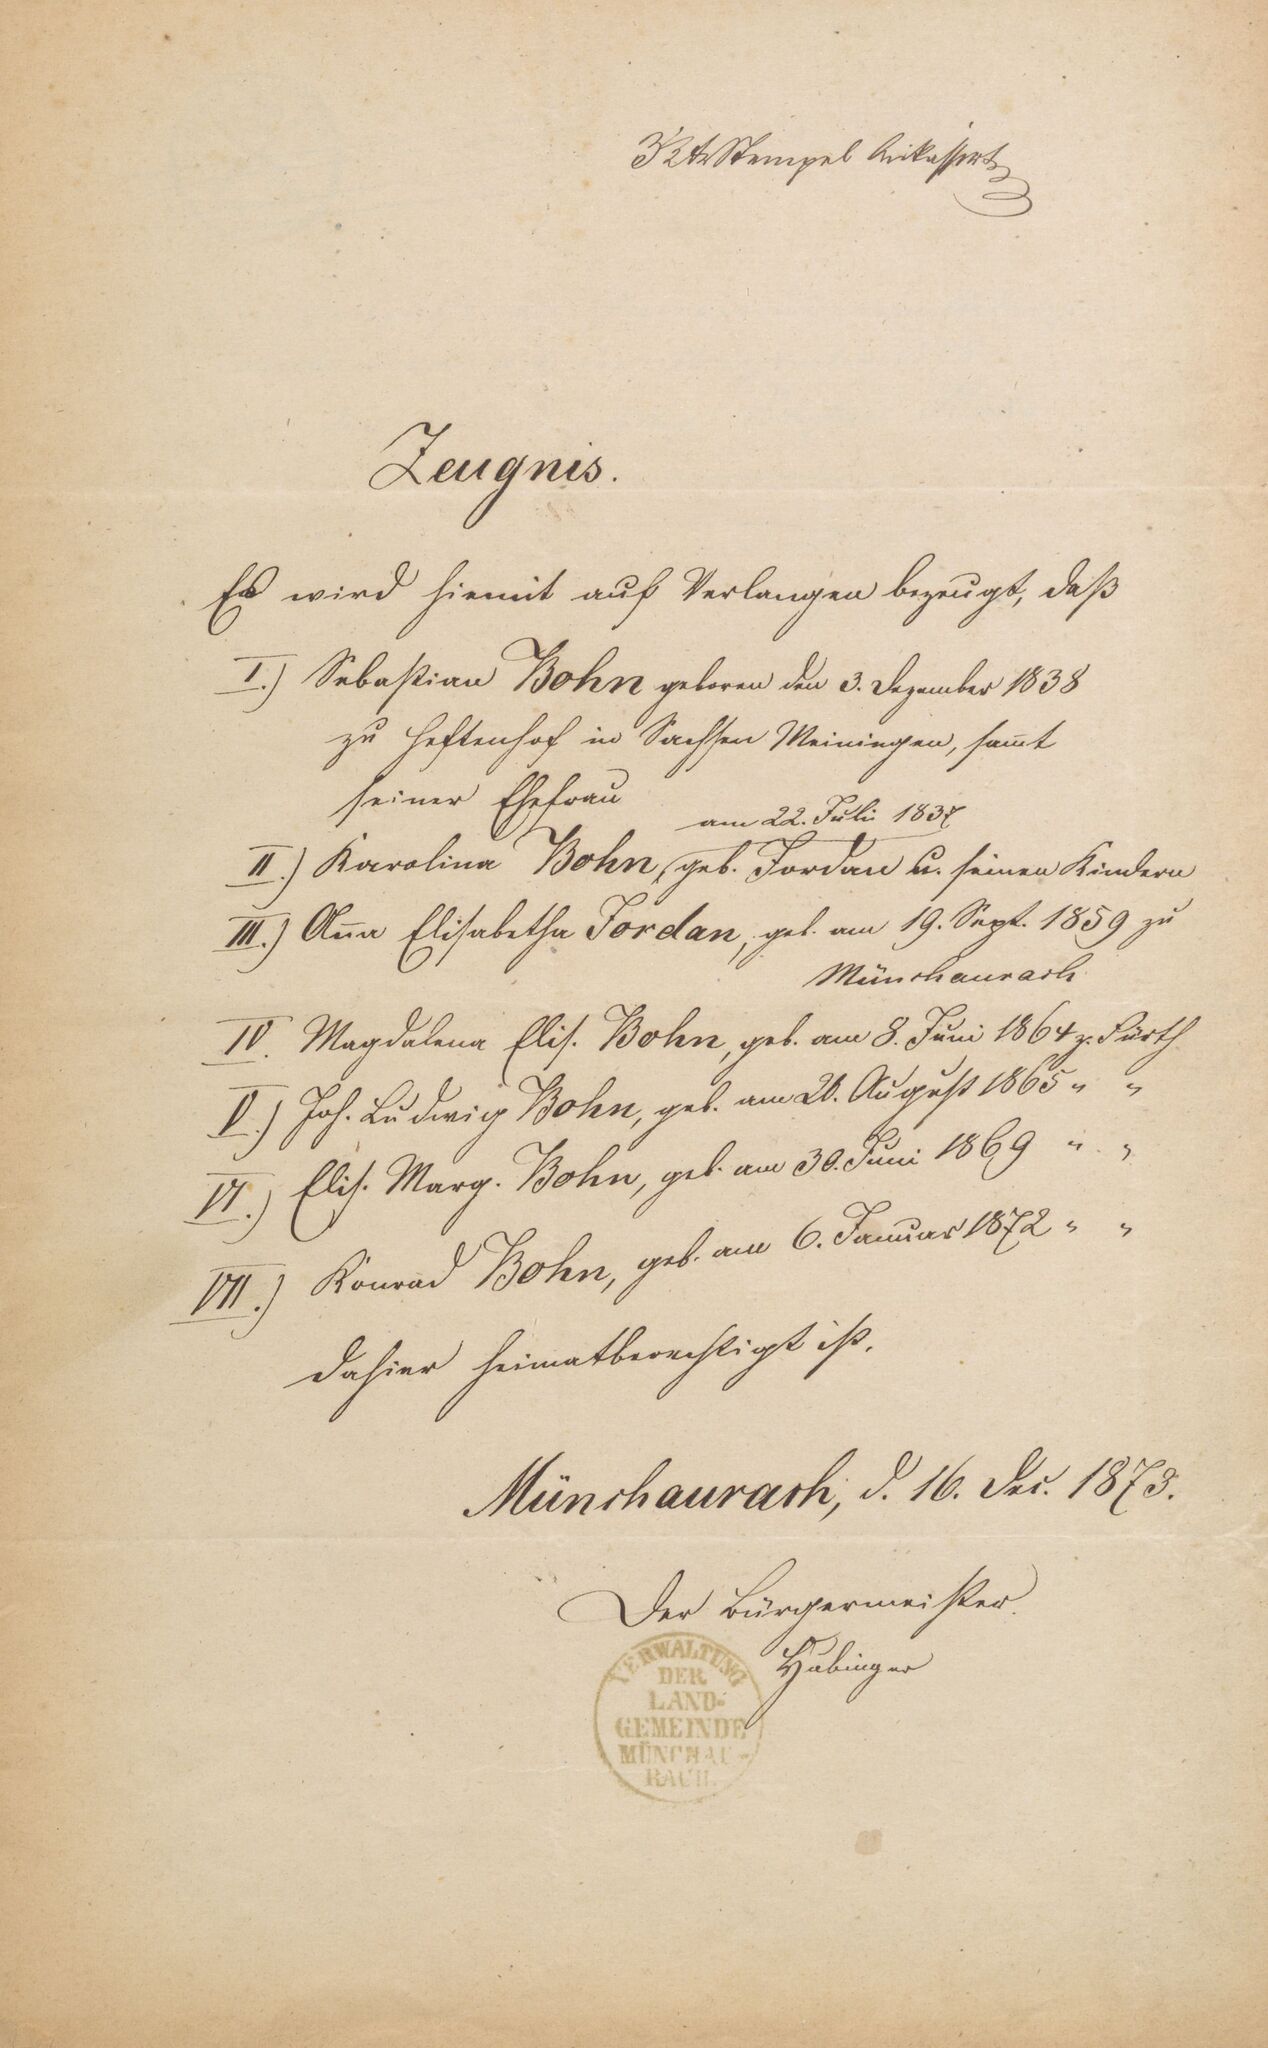 Stempel
Zeugnis.
Es wird hiemit auf Verlangen bezeugt, daß
I.) Sebastian Bohn geboren den 3. Dezember 1838
zu Heftenhof in Sachsen Meiningen, sammt
seiner Ehefrau
am 22. Juli 1837
II.) Karolina Bohn, geb. Jordan u. seinen Kindern
III.) Anna Elisabetha Jordan, geb. am 19. Sept. 1859 zu
Münchaurach
IV. Magdalena Elis. Bohn, geb. am 8. Juni 1864 z. Fürth
V.) Joh. Ludwig Bohn, geb. am August 1865 " "
VI.) Elis. Marg. Bohn, geb. am 30. Juni 1869 " "
VII.) Konrad Bohn, geb. am 6. Januar 1872 " "
dahier heimatberechtigt ist.
Münchaurach, d. 16. Dec. 1873.
Der Bürgermeister.
Hubinger
VERWALTUNG
DER
LAND-
GEMEINDE
MÜNCHAU-
RACH.